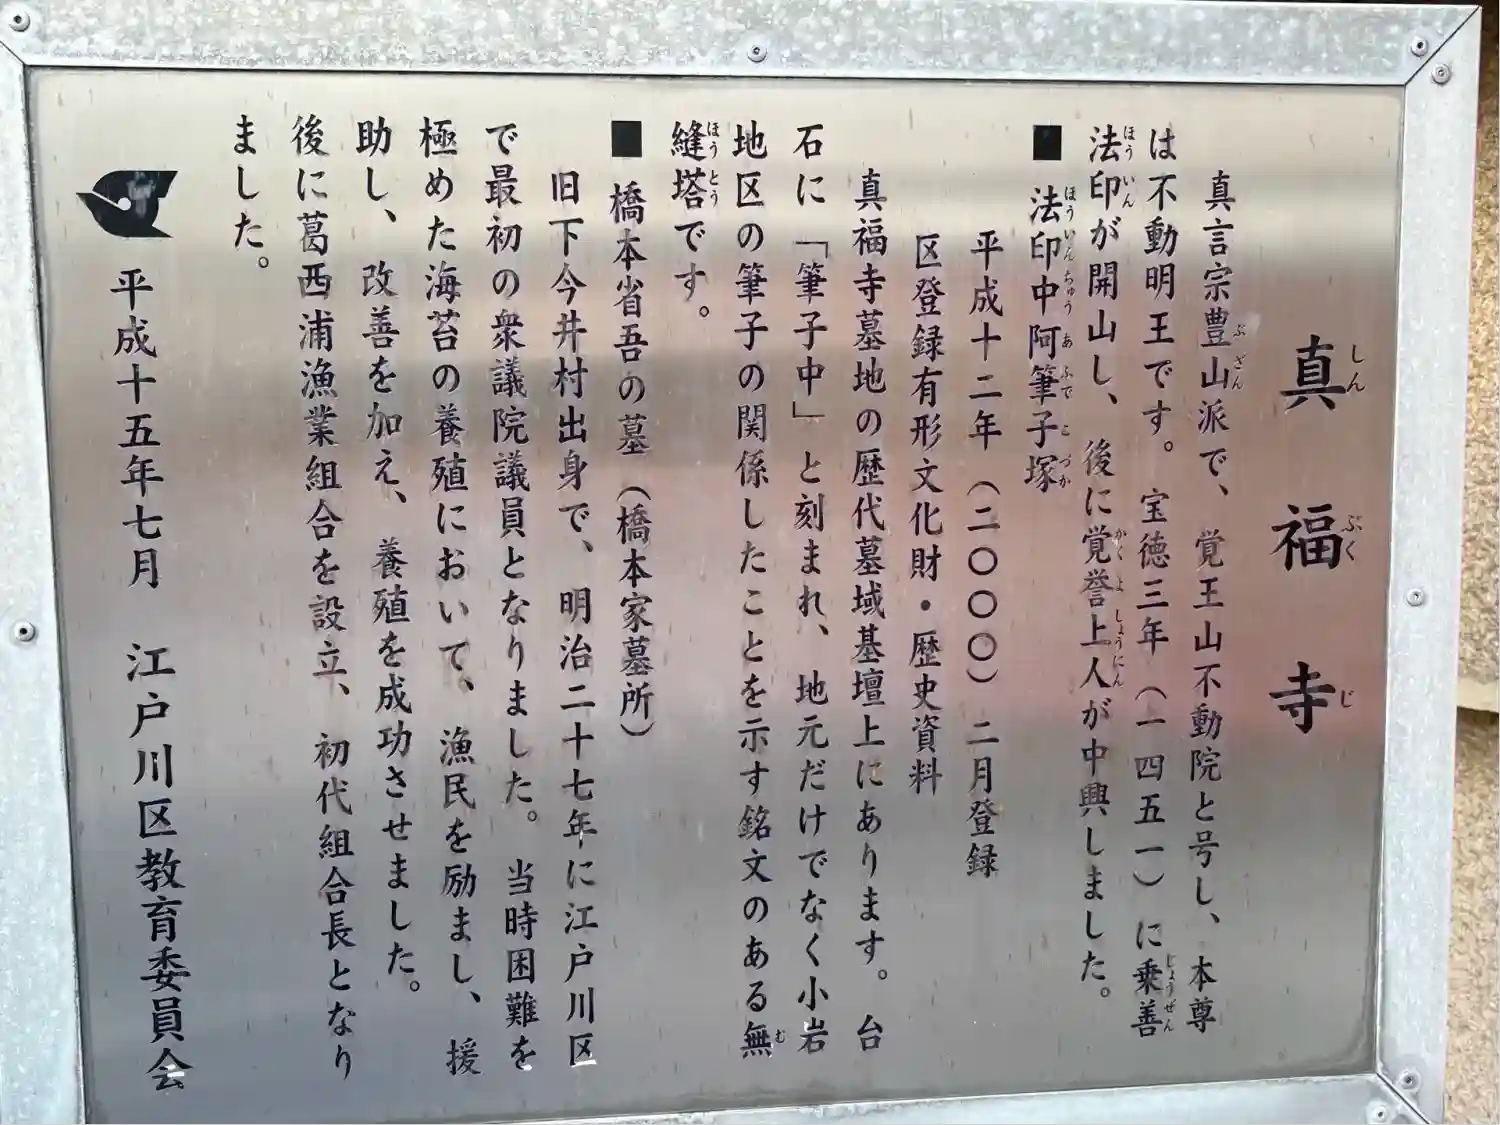 真福寺
しんぷくじ
真言宗豊山派で、覚王山不動院と号し、本尊
ぶざん
は不動明王です。宝徳三年（一四五一）に乗善
じょうぜん
法印が開山し、後に覚誉上人が中興しました。
ほういん かくよしょうにん
■ 法印中阿筆子塚
ほういんちゅうあふでこづか
平成十二年（二〇〇〇）二月登録
区登録有形文化財・歴史資料
真福寺墓地の歴代墓域基壇上にあります。台
石に「筆子中」と刻まれ、地元だけでなく小岩
地区の筆子の関係したことを示す銘文のある無
む
縫塔です。
ほうとう
■ 橋本省吾の墓（橋本家墓所）
旧下今井村出身で、明治二十七年に江戸川区
で最初の衆議院議員となりました。当時困難を
極めた海苔の養殖において、漁民を励まし、援
助し、改善を加え、養殖を成功させました。
後に葛西浦漁業組合を設立、初代組合長となり
ました。
平成十五年七月 江戸川区教育委員会